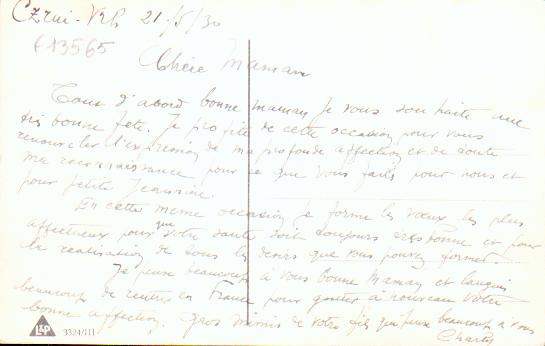 Czrni-Vrh 21/5/30
613565
Chère Maman
Tout d'abord bonne maman je vous souhaite une
très bonne fête. Je profite de cette occasion pour vous
renouveler l'expression de ma profonde affection et de toute
ma reconnaissance pour ce que vous faits pour nous et
pour petite Jeannine.
En cette même occasion je forme les vœux les plus
affectueux pour que votre santé soit toujours très bonne et pour
la realisation de tous les desirs que vous pouvez former.
Je pense beaucoup à vous bonne Maman et languis
beaucoup de rentrer en France pour gouter à nouveau votre
bonne affection. Gros mimis de votre fils qui pense beaucoup à vous
Charles
L&P 3324/III